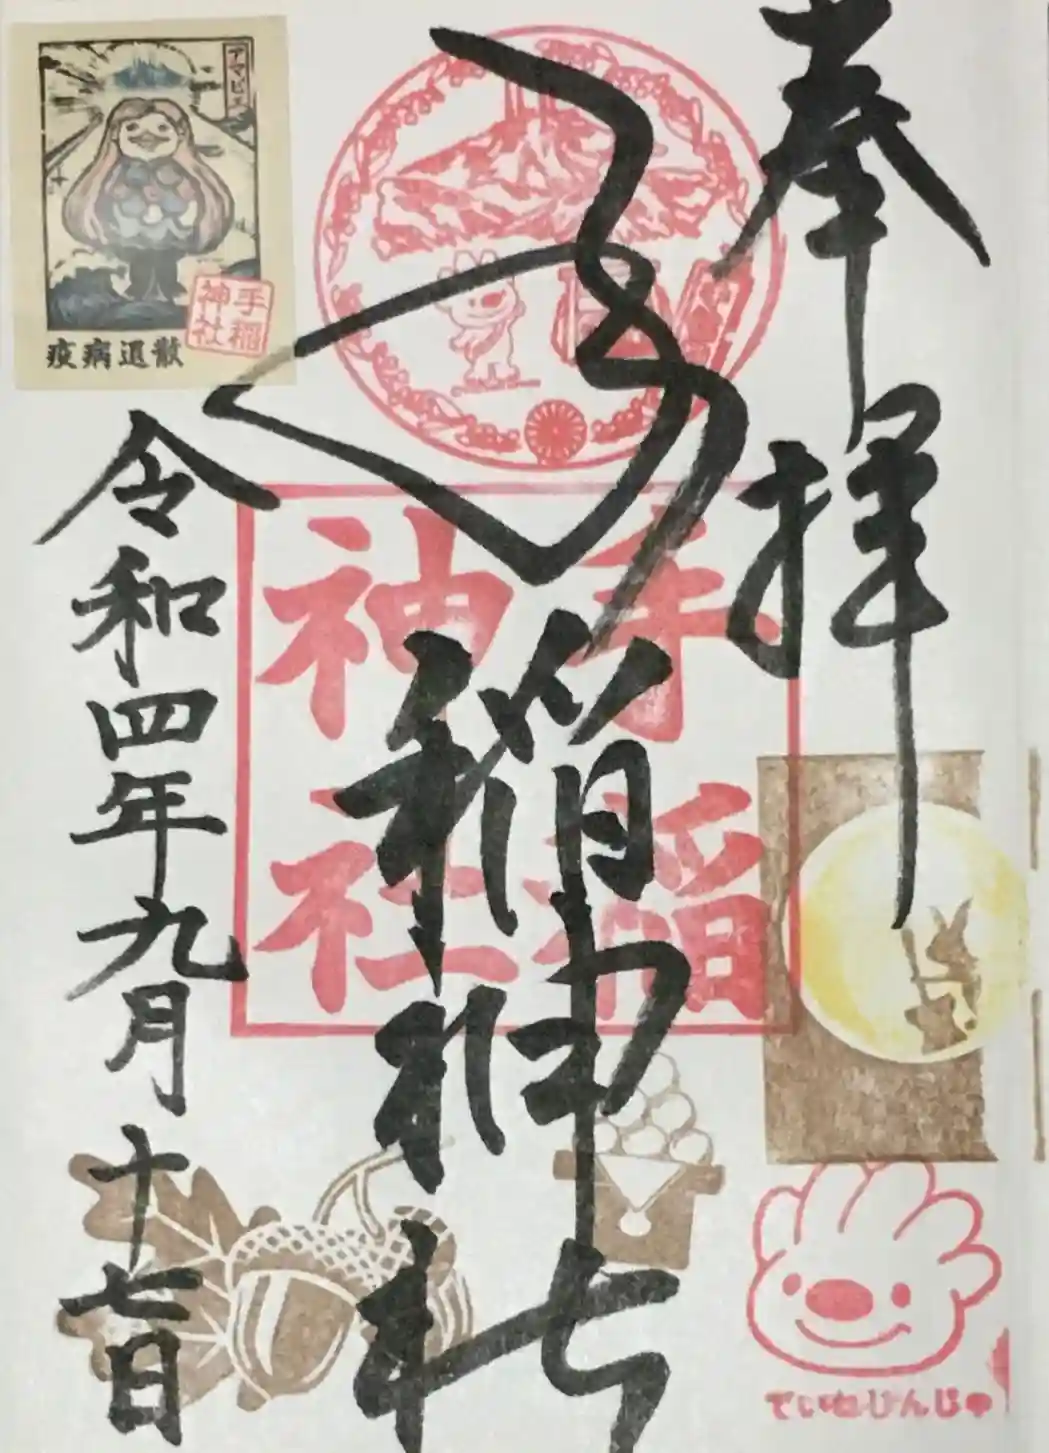 奉拝
手稲神社
手稲
神社
令和四年九月十七日
アマビエ
手稲
神社
疫病退散
ていねじんじゃ